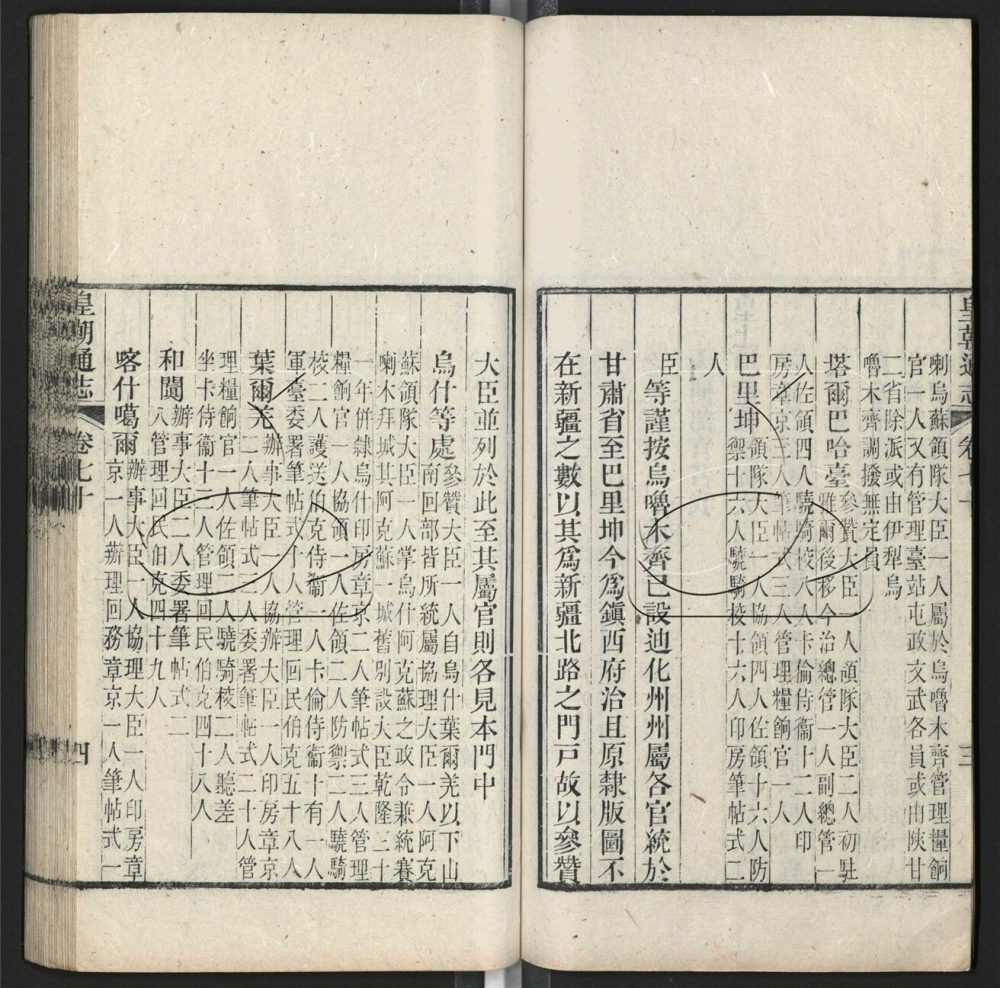 皇朝通志 卷七十 三
喇烏蘇領隊大臣一人屬於烏魯木齊管理糧餉
官一人又有管理臺站屯政文武各員或由陝甘
二省除派或由伊犁烏
魯木齊調撥無定員
塔爾巴哈臺參贊大臣一人領隊大臣二人初駐
雅爾後移今治總管一人副總管一
人佐領四人驍騎校八人卡倫侍衞十二人印
房章京三人筆帖式三人管理糧餉官一人
巴里坤領隊大臣一人協領四人佐領十六人防
禦十六人驍騎校十六人印房筆帖式二
人
臣等謹按烏魯木齊已設迪化州州屬各官統於
甘肅省至巴里坤今爲鎭西府治且原隸版圖不
在新疆之數以其爲新疆北路之門戸故以參贊
大臣並列於此至其屬官則各見本門中
烏什等處參贊大臣一人自烏什葉爾羌以下山
南回部皆所統屬協理大臣一人阿克
蘇領隊大臣一人掌烏什阿克蘇之政令兼統賽
喇木拜城其阿克蘇一城舊別設大臣乾隆三十
一年併隸烏什印房章京二人筆帖式三人管理
糧餉官一人協領一人佐領二人防禦二人驍騎
校二人護送伯克侍衞一人卡倫侍衞十有一人
軍臺委署筆帖式十人管理回民伯克五十八人
葉爾羌辦事大臣一人協辦大臣一人印房章京
二人筆帖式三人委署筆帖式二十人管
理糧餉官一人佐領二人驍騎校二人聽差
坐卡侍衞十二人管理回民伯克四十八人
和闐辦事大臣二人委署筆帖式二
人管理回民伯克四十九人
喀什噶爾辦事大臣一人協理大臣一人印房章
京一人辦理回務章京一人筆帖式一
皇朝通志 卷七十 四